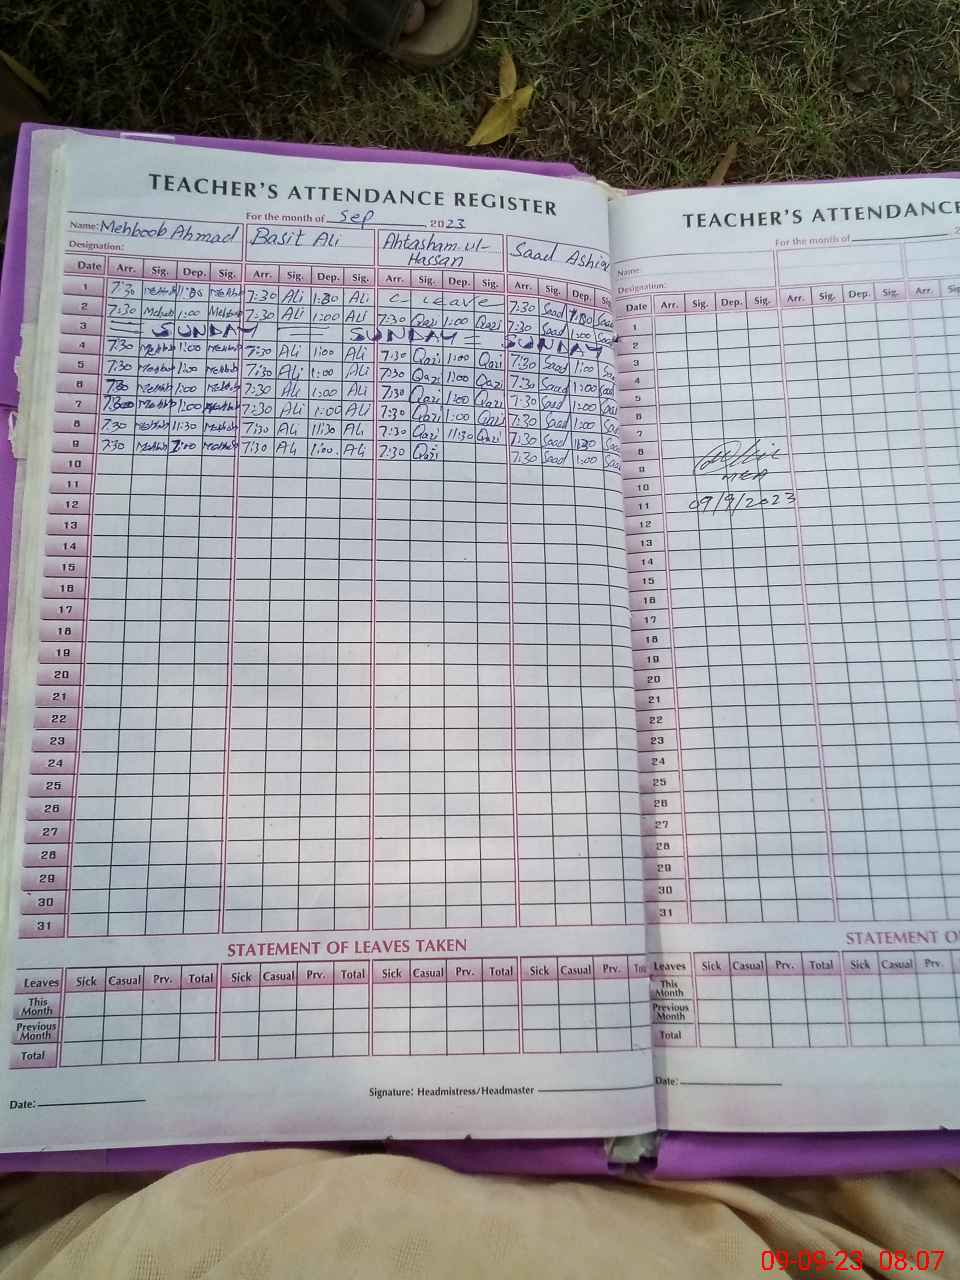 TEACHER'S ATTENDANCE REGISTER
For the month of Sep 2023
Name: Mehboob Ahmad Basit Ali Ahtasham-ul-Hassan Saad Ashiq
Designation:
Date Arr. Sig. Dep. Sig. Arr. Sig. Dep. Sig. Arr. Sig. Dep. Sig. Arr. Sig. Dep. Sig.
1 7:30 7:30 Ali Ali C- Leave 7:30 Saad
2 7:30 1:00 7:30 Ali 1:00 Ali 7:30 Qazi 1:00 Qazi 7:30 Saad 1:00
3 SUNDAY SUNDAY = SUNDAY
4 7:30 1:00 7:30 Ali 1:00 Ali 7:30 Qazi 1:00 Qazi 7:30 Saad 1:00
5 7:30 1:00 7:30 Ali 1:00 Ali 7:30 Qazi 1:00 Qazi 7:30 Saad 1:00
6 7:30 1:00 7:30 Ali 1:00 Ali 7:30 Qazi 1:00 Qazi 7:30 Saad 1:00
7 1:00 7:30 Ali 1:00 Ali 7:30 Qazi 1:00 Qazi 7:30 Saad 1:00
8 7:30 11:30 7:30 Ali 11:30 Ali 7:30 Qazi 11:30 Qazi 7:30 Saad 11:30
9 7:30 7:30 Ali 1:00 Ali 7:30 Qazi 7:30 Saad 1:00
10
11
12
13
14
15
16
17
18
19
20
21
22
23
24
25
26
27
28
29
30
31
STATEMENT OF LEAVES TAKEN
Leaves Sick Casual Prv. Total Sick Casual Prv. Total Sick Casual Prv. Total Sick Casual Prv.
This Month
Previous Month
Total
Signature: Headmistress/Headmaster
Date:
TEACHER'S ATTENDANCE
For the month of
Name:
Designation:
Date Arr. Sig. Dep. Sig. Arr. Sig. Dep. Sig. Arr. Sig.
1
2
3
4
5
6
7
8
9
10
11 09/9/2023
12
13
14
15
16
17
18
19
20
21
22
23
24
25
26
27
28
29
30
31
STATEMENT
Leaves Sick Casual Prv. Total Sick Casual Prv.
This Month
Previous Month
Total
Date:
09-09-23 08:07